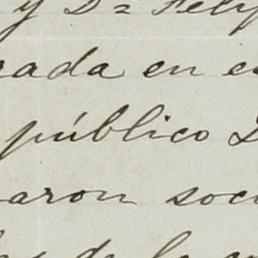 y D.ª Feli
cada en e
público D
aron soc
de la